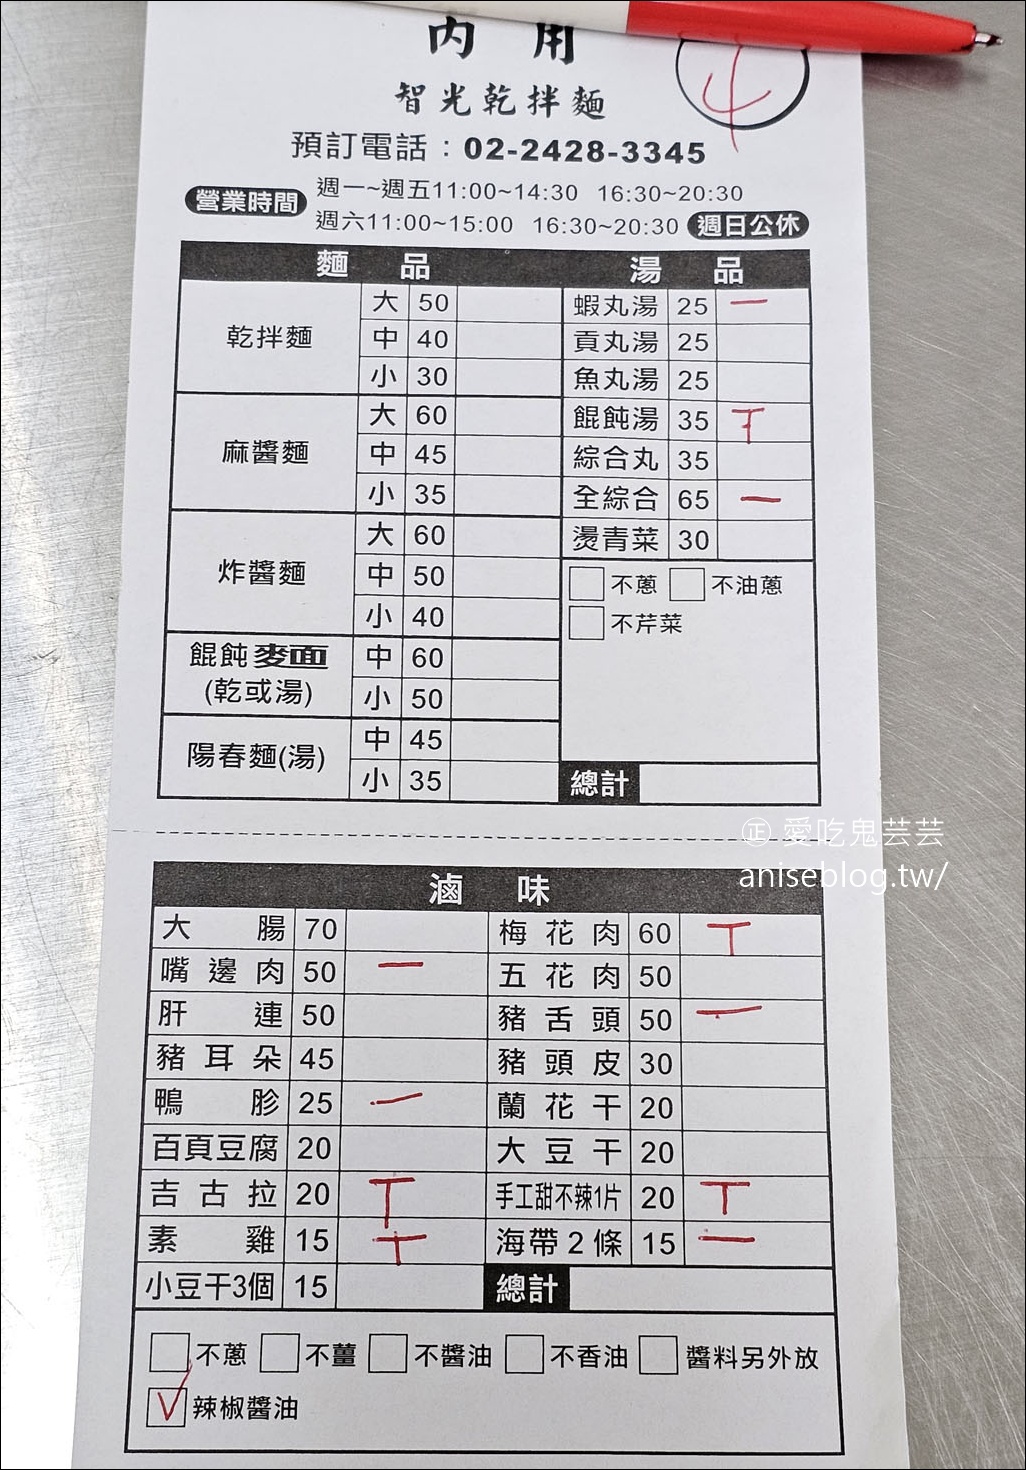 內 用
智光乾拌麵
預訂電話：02-2428-3345
營業時間 週一~週五11:00~14:30 16:30~20:30
週六11:00~15:00 16:30~20:30 週日公休
麵 品 湯 品
乾拌麵 大 50 蝦丸湯 25 一
中 40 貢丸湯 25
小 30 魚丸湯 25
麻醬麵 大 60 餛飩湯 35
中 45 綜合丸 35
小 35 全綜合 65 一
炸醬麵 大 60 燙青菜 30
中 50 不蔥 不油蔥
小 40 不芹菜
餛飩麥面 中 60
(乾或湯) 小 50
陽春麵(湯) 中 45
小 35 總計
㊣ 愛吃鬼芸芸
aniseblog.tw/
滷 味
大腸 70 梅花肉 60 T
嘴邊肉 50 一 五花肉 50
肝連 50 豬舌頭 50 一
豬耳朵 45 豬頭皮 30
鴨胗 25 一 蘭花干 20
百頁豆腐 20 大豆干 20
吉古拉 20 T 手工甜不辣1片 20 T
素雞 15 T 海帶2條 15 一
小豆干3個 15 總計
不蔥 不薑 不醬油 不香油 醬料另外放
辣椒醬油